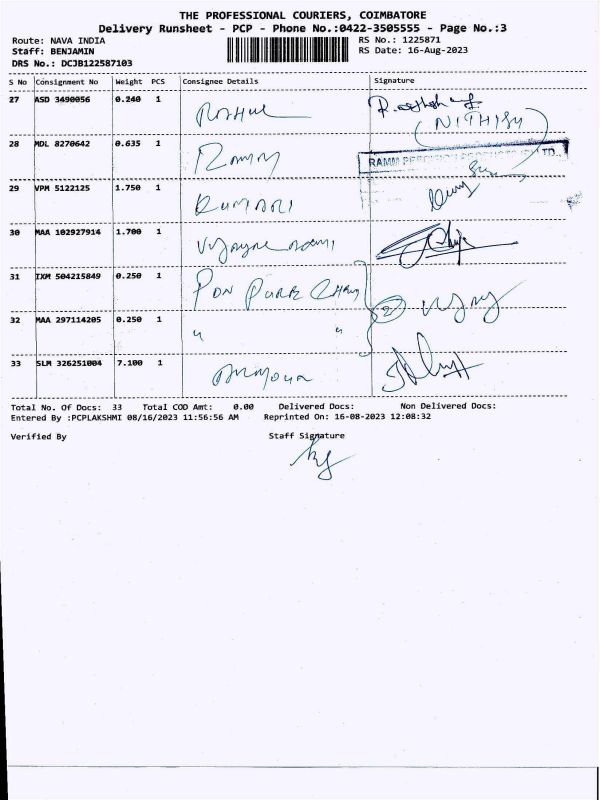 THE PROFESSIONAL COURIERS, COIMBATORE
Delivery Runsheet - PCP - Phone No.:0422-3505555 - Page No.:3
Route: NAVA INDIA RS No.: 1225871
Staff: BENJAMIN RS Date: 16-Aug-2023
DRS No.: DCJB122587103
S No Consignment No Weight PCS Consignee Details Signature
27 ASD 3490056 0.240 1
(NITHISH)
28 MDL 8270642 0.635 1 Ramm
RAMM
29 VPM 5122125 1.750 1 KUMARI
30 MAA 102927914 1.700 1
31 IXM 504215849 0.250 1 PON PURE CHEM
32 MAA 297114205 0.250 1 " "
33 SLM 326251004 7.100 1
Total No. Of Docs: 33 Total COD Amt: 0.00 Delivered Docs: Non Delivered Docs:
Entered By :PCPLAKSHMI 08/16/2023 11:56:56 AM Reprinted On: 16-08-2023 12:08:32
Verified By Staff Signature